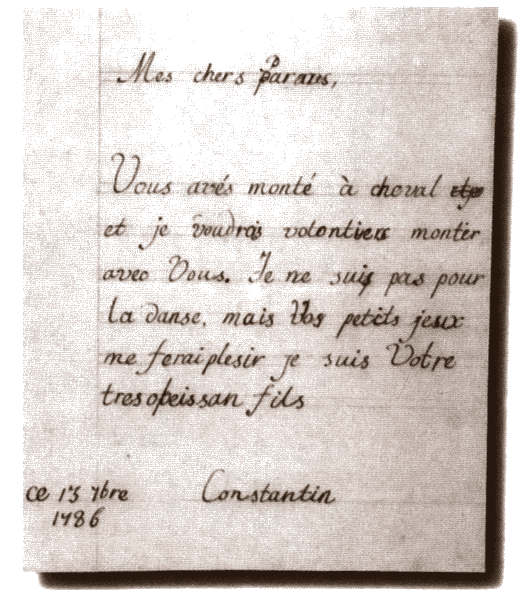 Mes chers Parans,
Vous avés monté à cheval
et je voudrois volontiers monter
avec Vous. Je ne suis pas pour
la danse, mais Vos petits jeux
me ferai plesir je suis Votre
tres opeissan fils
ce 13 7bre Constantin
1786